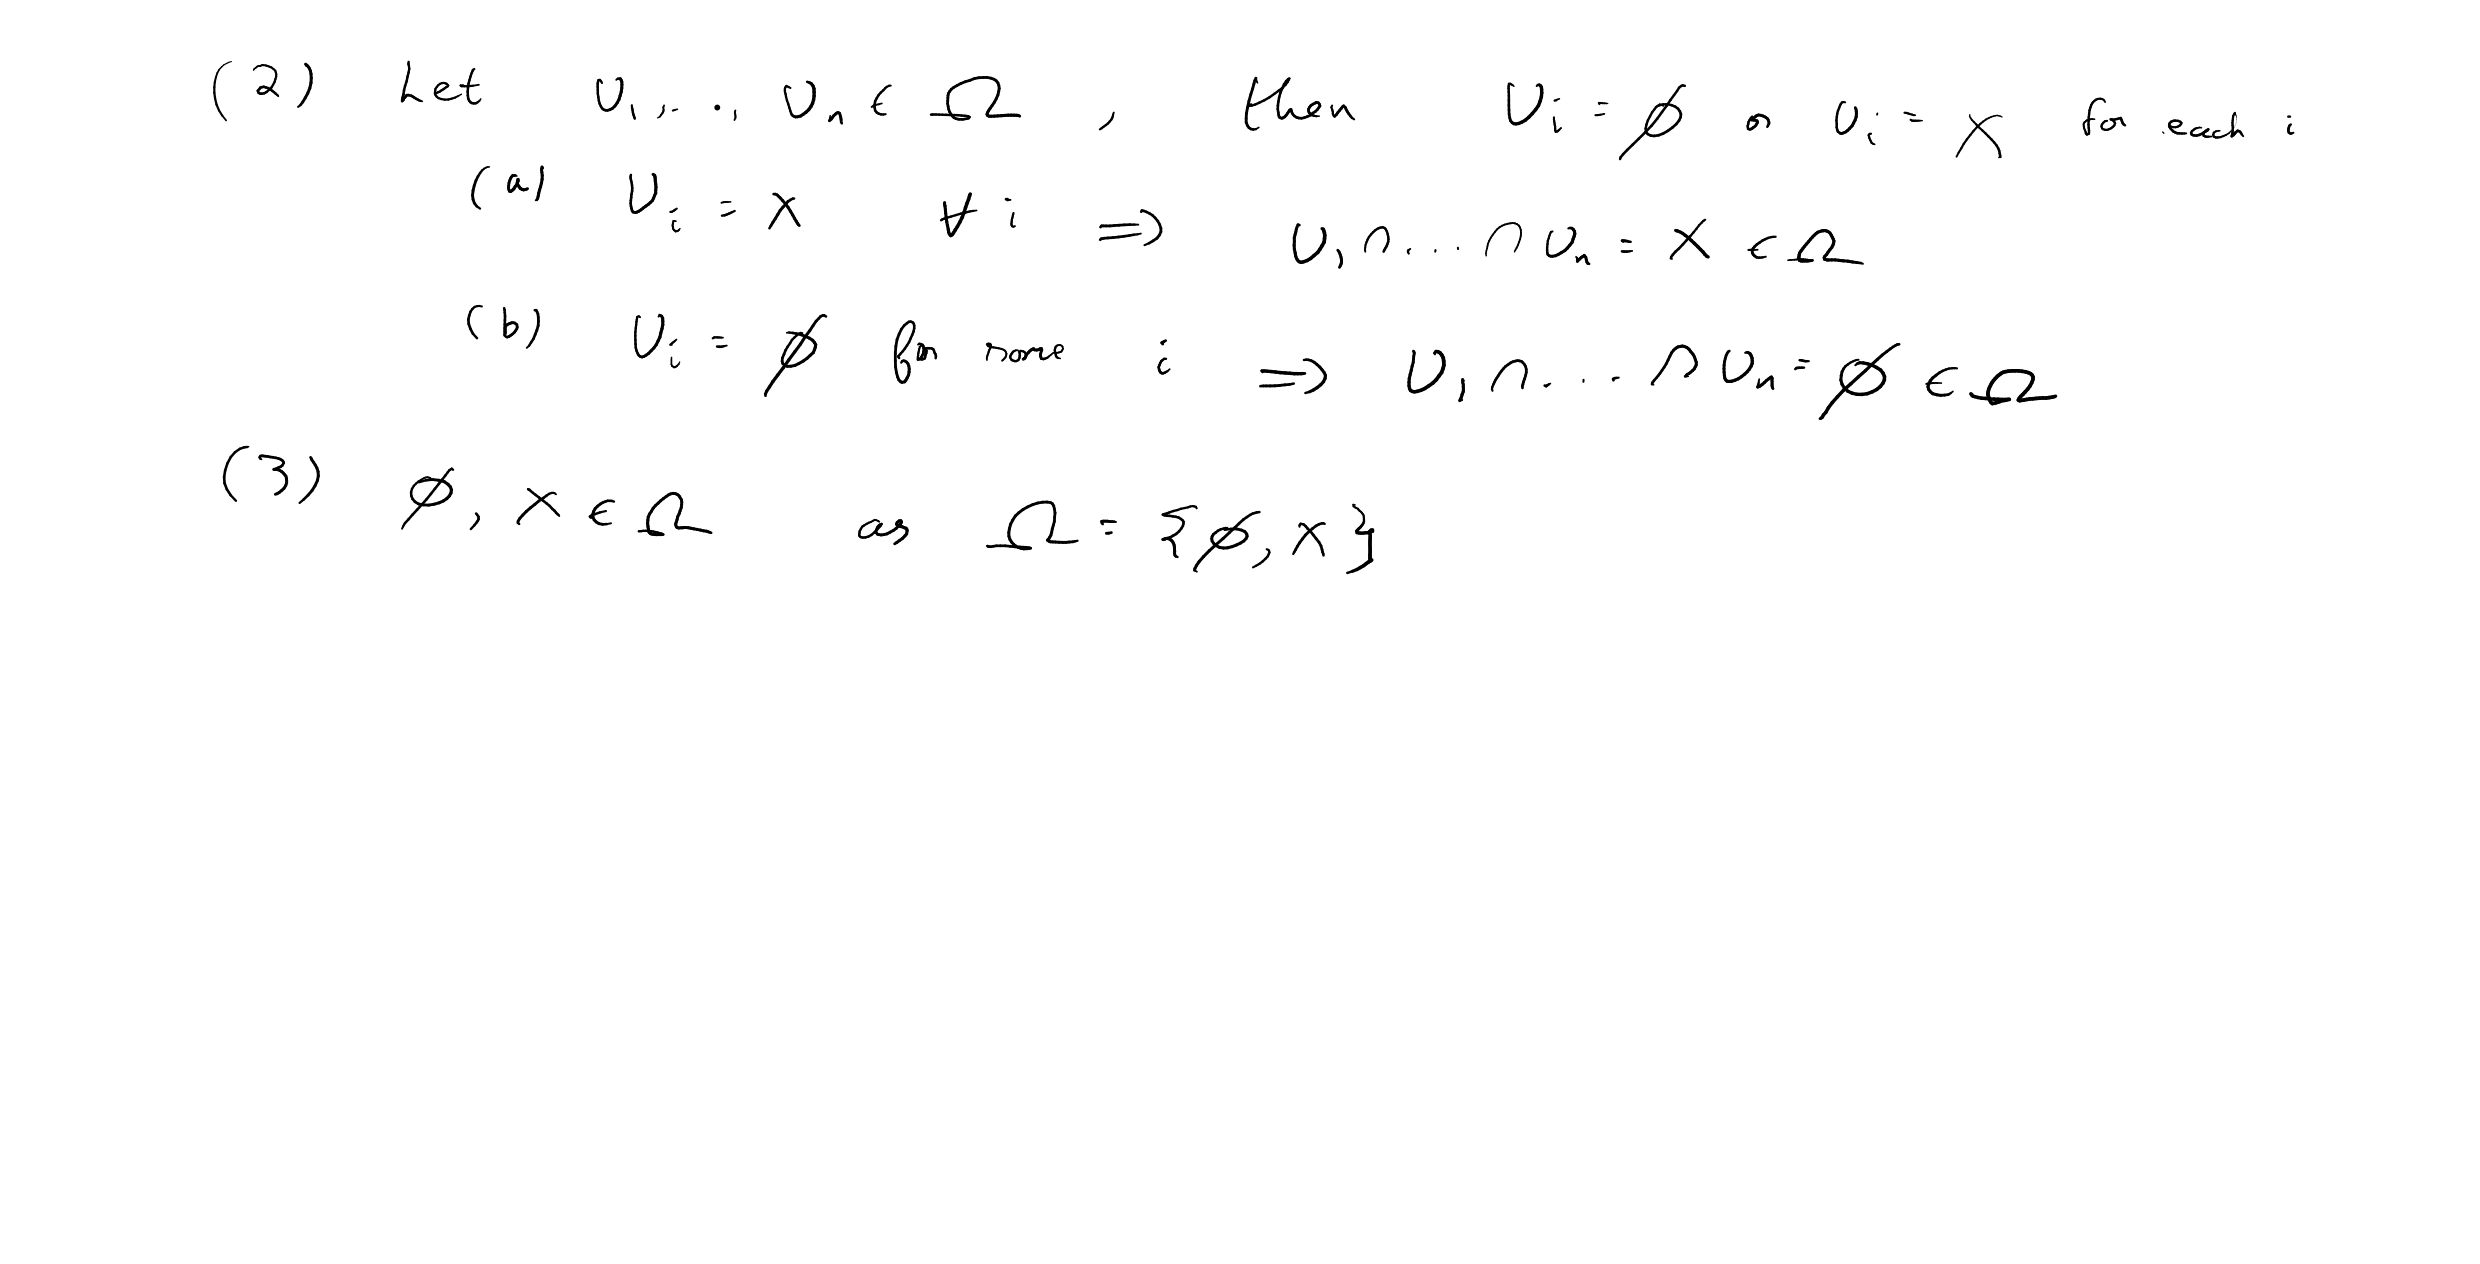 (2) Let U₁,..., Uₙ ∈ Ω, then Uᵢ = ∅ or Uᵢ = X for each i
(a) Uᵢ = X ∀ i ⇒ U₁ ∩ ... ∩ Uₙ = X ∈ Ω
(b) Uᵢ = ∅ for some i ⇒ U₁ ∩ ... ∩ Uₙ = ∅ ∈ Ω
(3) ∅, X ∈ Ω as Ω = {∅, X}